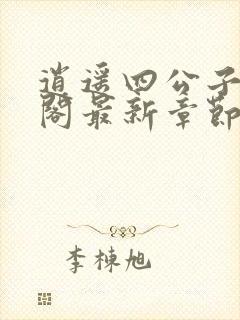 逍遥四公子
阁最新章节
李栋旭